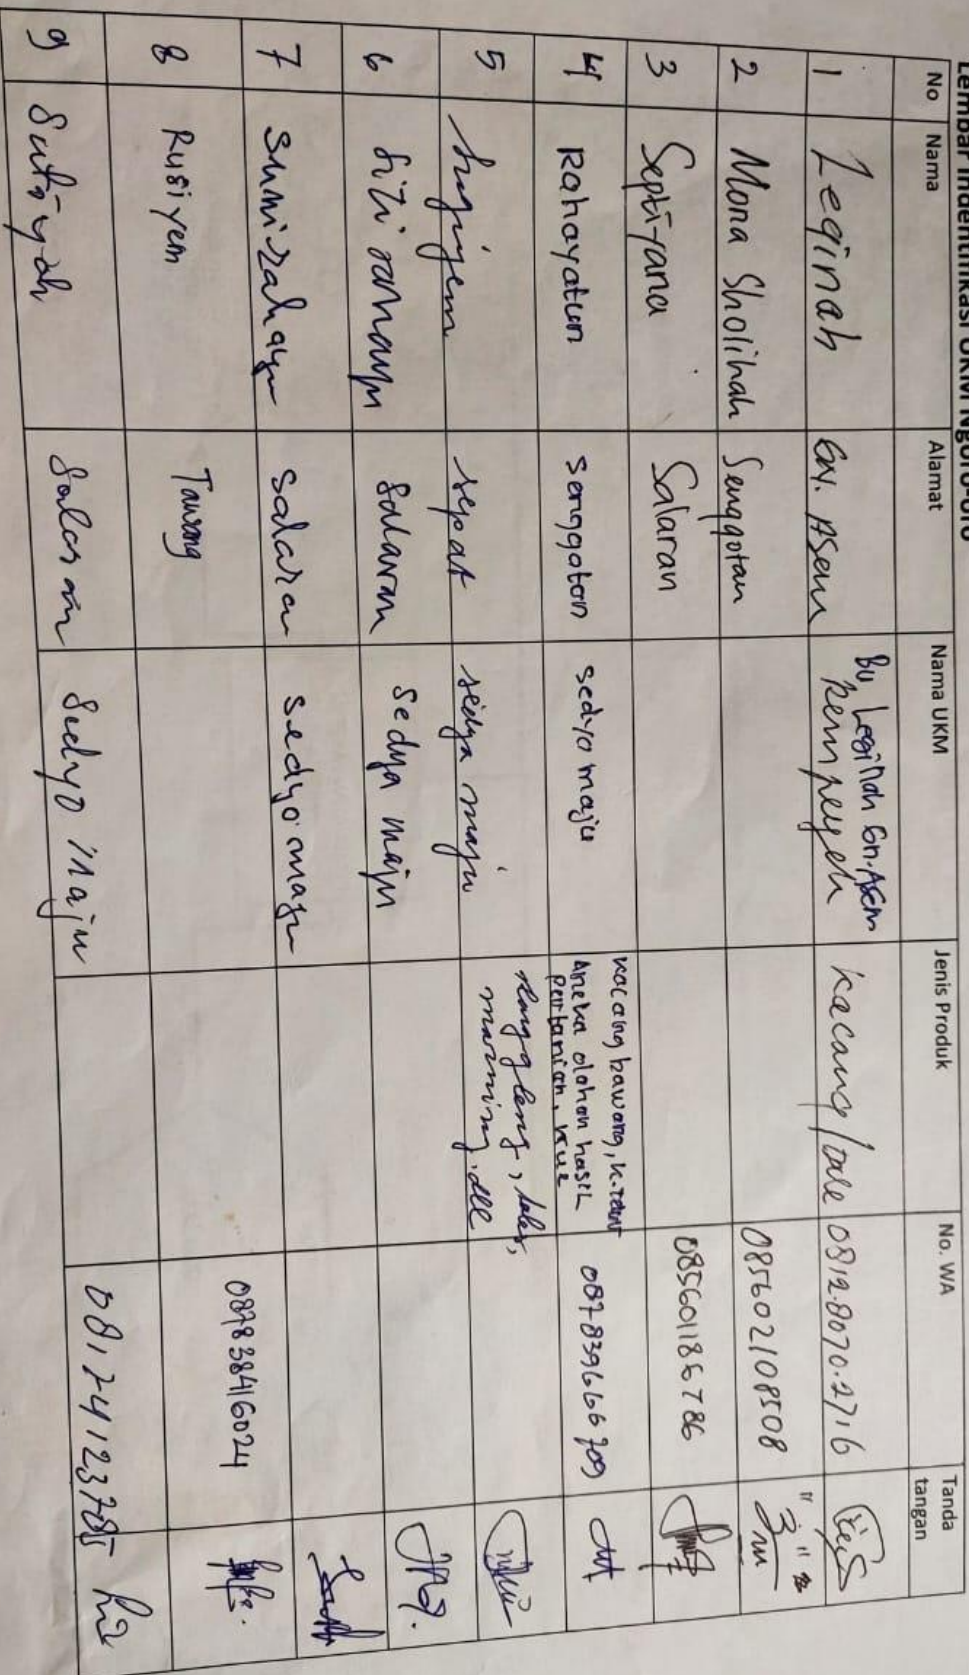 Lembar Indentifikasi UKM Ngoro-oro
No Nama Alamat Nama UKM Jenis Produk No. WA Tanda tangan
1 Leginah Gn. Asem Bu Leginah Gn. Asem Rempeyek Kacang/tale 0812.8070.2716
2 Mona Sholihah Senggotan 085602108508
3 Septiyana Salaran 085601186786
4 Rahayatun senggotan sedyo maju kacang bawang, k. telur Aneka olahan hasil pertanian, kue 087839666709
5 sugiyem sepat sedya maju slanggleng, talas, marning, dll
6 Siti Salaran Sedya maju
7 Sumi rahayu Salaran sedyo maju
8 Rusiyem Tawang 087838416024
9 Sutiyah Salaran Sedyo Maju